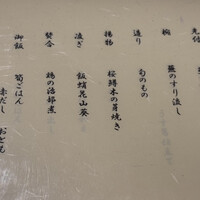 先付
椀
蕪のすり流し
造り
旬のもの
揚物
桜鱒木の芽焼き
凌ぎ
飯蛸花山葵
焚合
鴨の治部煮
御飯
筍ごはん
赤だし
おとも